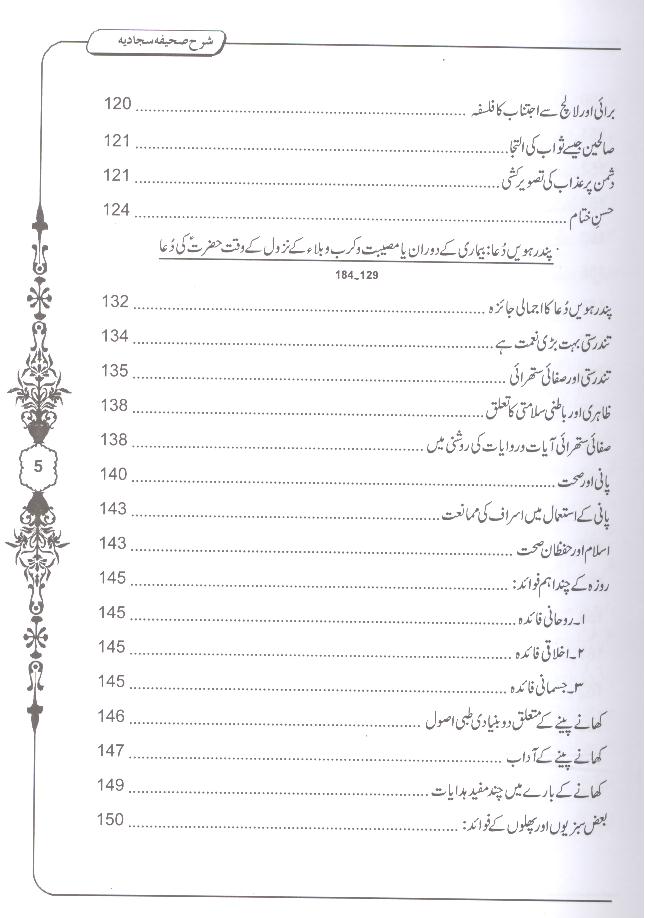 شرح صحیفہ سجادیہ
برائی اور لالچ سے اجتناب کا فلسفہ ........ 120
صالحین جیسے ثواب کی التجا ........ 121
دشمن پر عذاب کی تصویر کشی ........ 121
حسنِ ختام ........ 124
پندرہویں دُعا: بیماری کے دوران یا مصیبت و کرب و بلاء کے نزول کے وقت حضرتؑ کی دُعا
129-184
پندرہویں دُعا کا اجمالی جائزہ ........ 132
تندرستی بہت بڑی نعمت ہے ........ 134
تندرستی اور صفائی ستھرائی ........ 135
ظاہری اور باطنی سلامتی کا تعلق ........ 138
صفائی ستھرائی آیات و روایات کی روشنی میں ........ 138
پانی اور صحت ........ 140
پانی کے استعمال میں اسراف کی ممانعت ........ 143
اسلام اور حفظان صحت ........ 143
روزہ کے چند اہم فوائد: ........ 145
۱۔ روحانی فائدہ ........ 145
۲۔ اخلاقی فائدہ ........ 145
۳۔ جسمانی فائدہ ........ 145
کھانے پینے کے متعلق دو بنیادی طبی اصول ........ 146
کھانے پینے کے آداب ........ 147
کھانے کے بارے میں چند مفید ہدایات ........ 149
بعض سبزیوں اور پھلوں کے فوائد: ........ 150
5